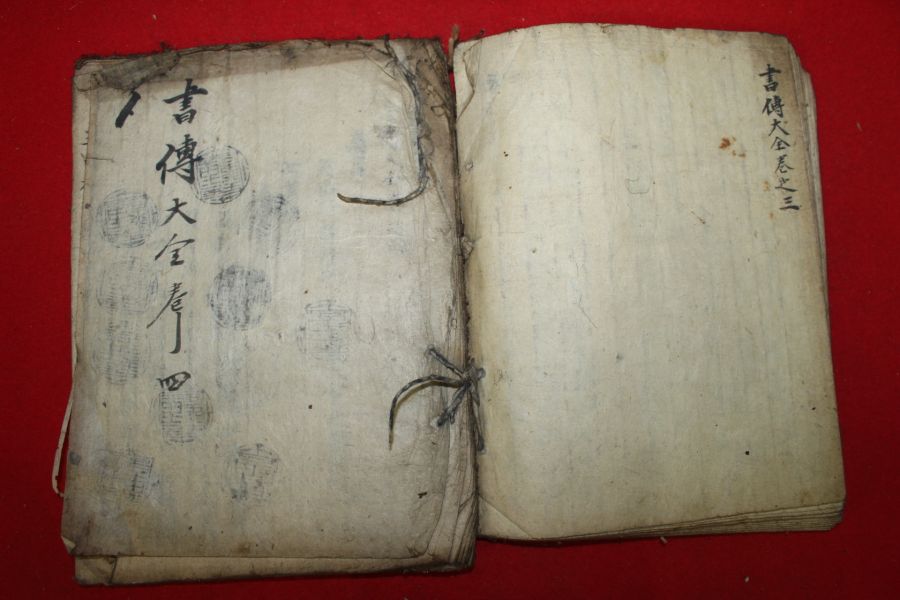 書傳大全卷之三
書傳大全卷四